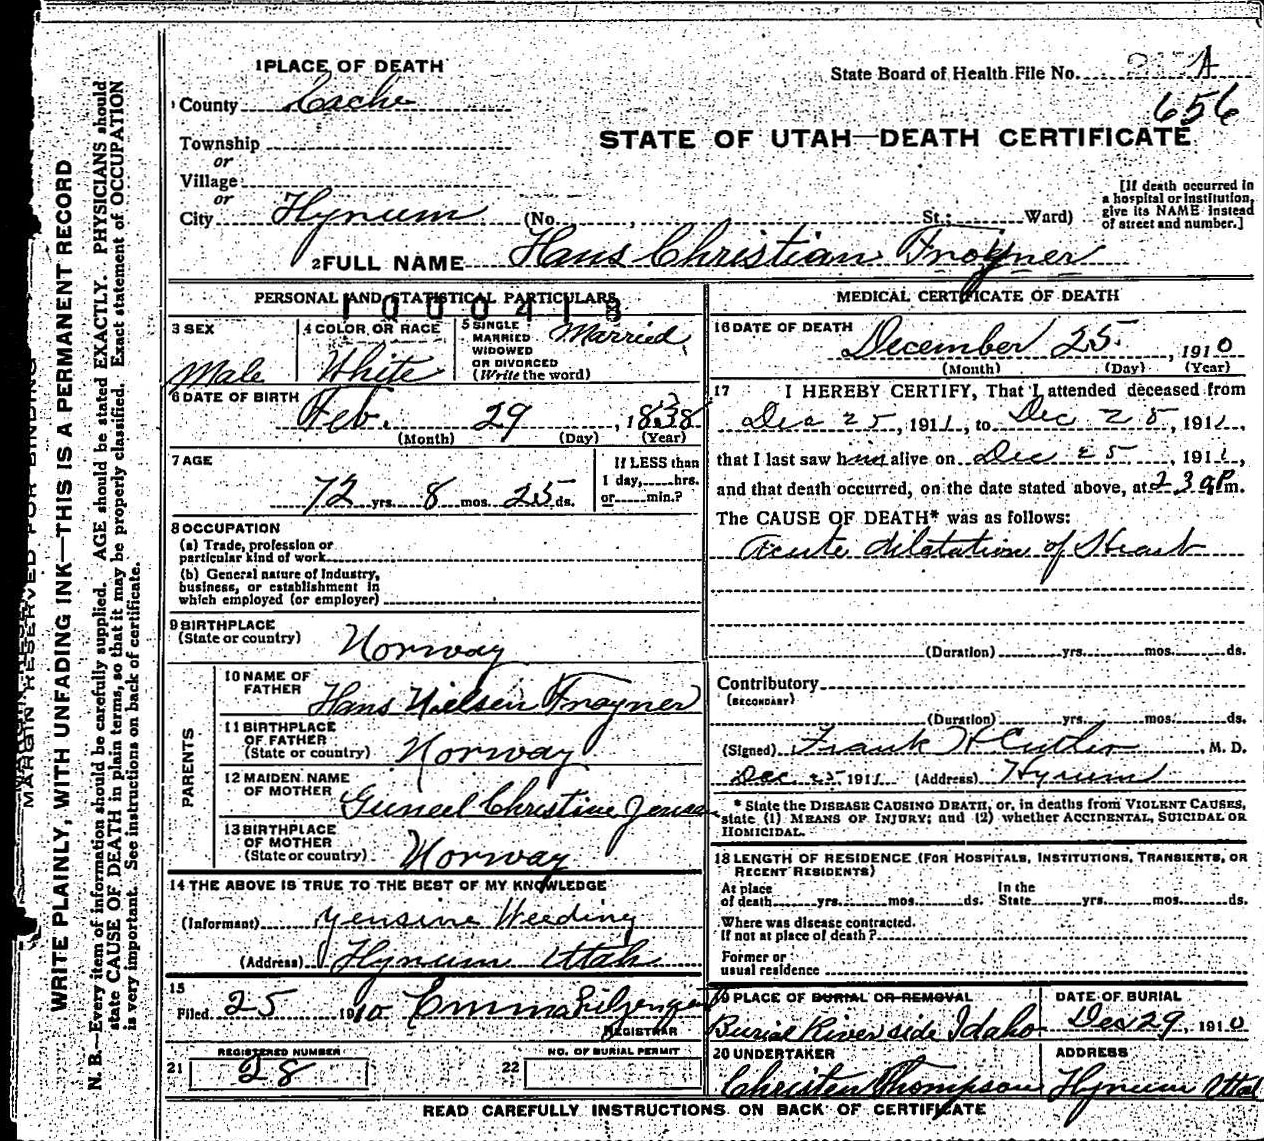 1 PLACE OF DEATH
State Board of Health File No. A
656
County Cache
STATE OF UTAH—DEATH CERTIFICATE
Township
or
Village
or
City Hyrum (No. , St.; Ward)
[If death occurred in
a hospital or institution,
give its NAME instead
of street and number.]
2 FULL NAME Hans Christian Froyner
PERSONAL AND STATISTICAL PARTICULARS
1000413
3 SEX
Male
4 COLOR OR RACE
White
5 SINGLE
MARRIED
WIDOWED
OR DIVORCED
(Write the word)
Married
6 DATE OF BIRTH
Feb. 29, 1838
(Month) (Day) (Year)
7 AGE
72 yrs. 8 mos. 25 ds.
If LESS than
1 day, hrs.
or min.?
8 OCCUPATION
(a) Trade, profession or
particular kind of work
(b) General nature of Industry,
business, or establishment in
which employed (or employer)
9 BIRTHPLACE
(State or country)
Norway
PARENTS
10 NAME OF
FATHER
Hans Nielsen Froyner
11 BIRTHPLACE
OF FATHER
(State or country)
Norway
12 MAIDEN NAME
OF MOTHER
Christine Jensen
13 BIRTHPLACE
OF MOTHER
(State or country)
Norway
14 THE ABOVE IS TRUE TO THE BEST OF MY KNOWLEDGE
(Informant) Yensine Weeding
(Address) Hyrum Utah
15
Filed 25 1910 Emma
REGISTRAR
21 REGISTERED NUMBER
28
22 NO. OF BURIAL PERMIT
MEDICAL CERTIFICATE OF DEATH
16 DATE OF DEATH
December 25, 1910
(Month) (Day) (Year)
17 I HEREBY CERTIFY, That I attended deceased from
Dec 25, 1911, to Dec 25, 1911,
that I last saw him alive on Dec 25, 1911,
and that death occurred, on the date stated above, at 2 30 P m.
The CAUSE OF DEATH* was as follows:
Acute dilatation of Heart
(Duration) yrs. mos. ds.
Contributory
(SECONDARY)
(Duration) yrs. mos. ds.
(Signed) Frank H Cutler, M. D.
Dec 25 1911 (Address) Hyrum
* State the DISEASE CAUSING DEATH, or, in deaths from VIOLENT CAUSES,
state (1) MEANS OF INJURY; and (2) whether ACCIDENTAL, SUICIDAL OR
HOMICIDAL.
18 LENGTH OF RESIDENCE (FOR HOSPITALS, INSTITUTIONS, TRANSIENTS, OR
RECENT RESIDENTS)
At place
of death yrs. mos. ds.
In the
State yrs. mos. ds.
Where was disease contracted.
If not at place of death?
Former or
usual residence
19 PLACE OF BURIAL OR REMOVAL
Burial River side Idaho
DATE OF BURIAL
Dec 29, 1910
20 UNDERTAKER
Christen Thompson
ADDRESS
Hyrum Utah
READ CAREFULLY INSTRUCTIONS ON BACK OF CERTIFICATE
MARGIN RESERVED FOR BINDING
WRITE PLAINLY, WITH UNFADING INK—THIS IS A PERMANENT RECORD
N. B.—Every item of information should be carefully supplied. AGE should be stated EXACTLY. PHYSICIANS should
state CAUSE OF DEATH in plain terms, so that it may be properly classified. Exact statement of OCCUPATION
is very important. See instructions on back of certificate.